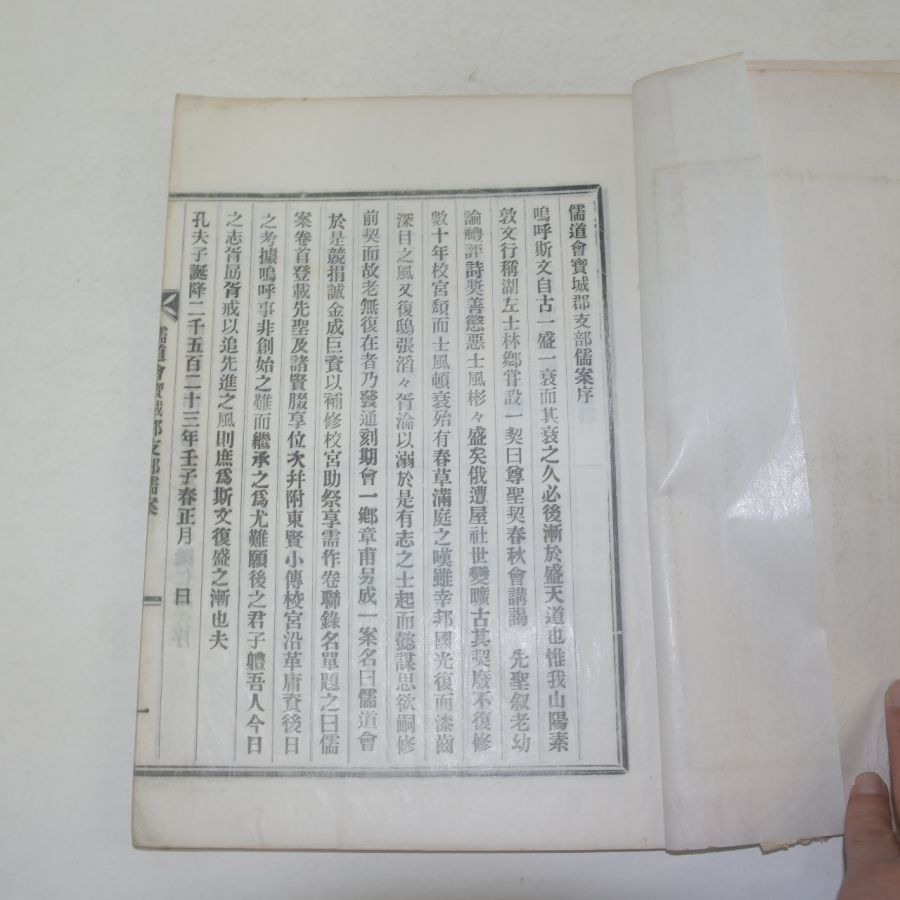 儒道會寶城郡支部儒案序
嗚呼斯文自古一盛一衰而其衰之久必後漸於盛天道也惟我山陽素
敦文行稱湖左士林鄕甞設一契曰尊聖契春秋會講謁　先聖叙老幼
論禮評詩奬善懲惡士風彬々盛矣俄遭屋社世變曠古其契廢不復修
數十年校宮頹而士風頓衰殆有春草滿庭之嘆雖幸邦國光復而漆齒
深目之風又復鴟張滔々胥淪以溺於是有志之士起而懿謀思欲嗣修
前契而故老無復在者乃發通刻期會一鄕章甫另成一案名曰儒道會
於是競捐誠金成巨資以補修校宮助祭享需作卷聯錄名單題之曰儒
案卷首登載先聖及諸賢腏享位次幷附東賢小傳校宮沿革庸資後日
之考據嗚呼事非創始之難而繼承之爲尤難願後之君子軆吾人今日
之志胥勗胥戒以追先進之風則庶爲斯文復盛之漸也夫
孔夫子誕降二千五百二十三年壬子春正月　日
儒道會寶城郡支部儒案
一